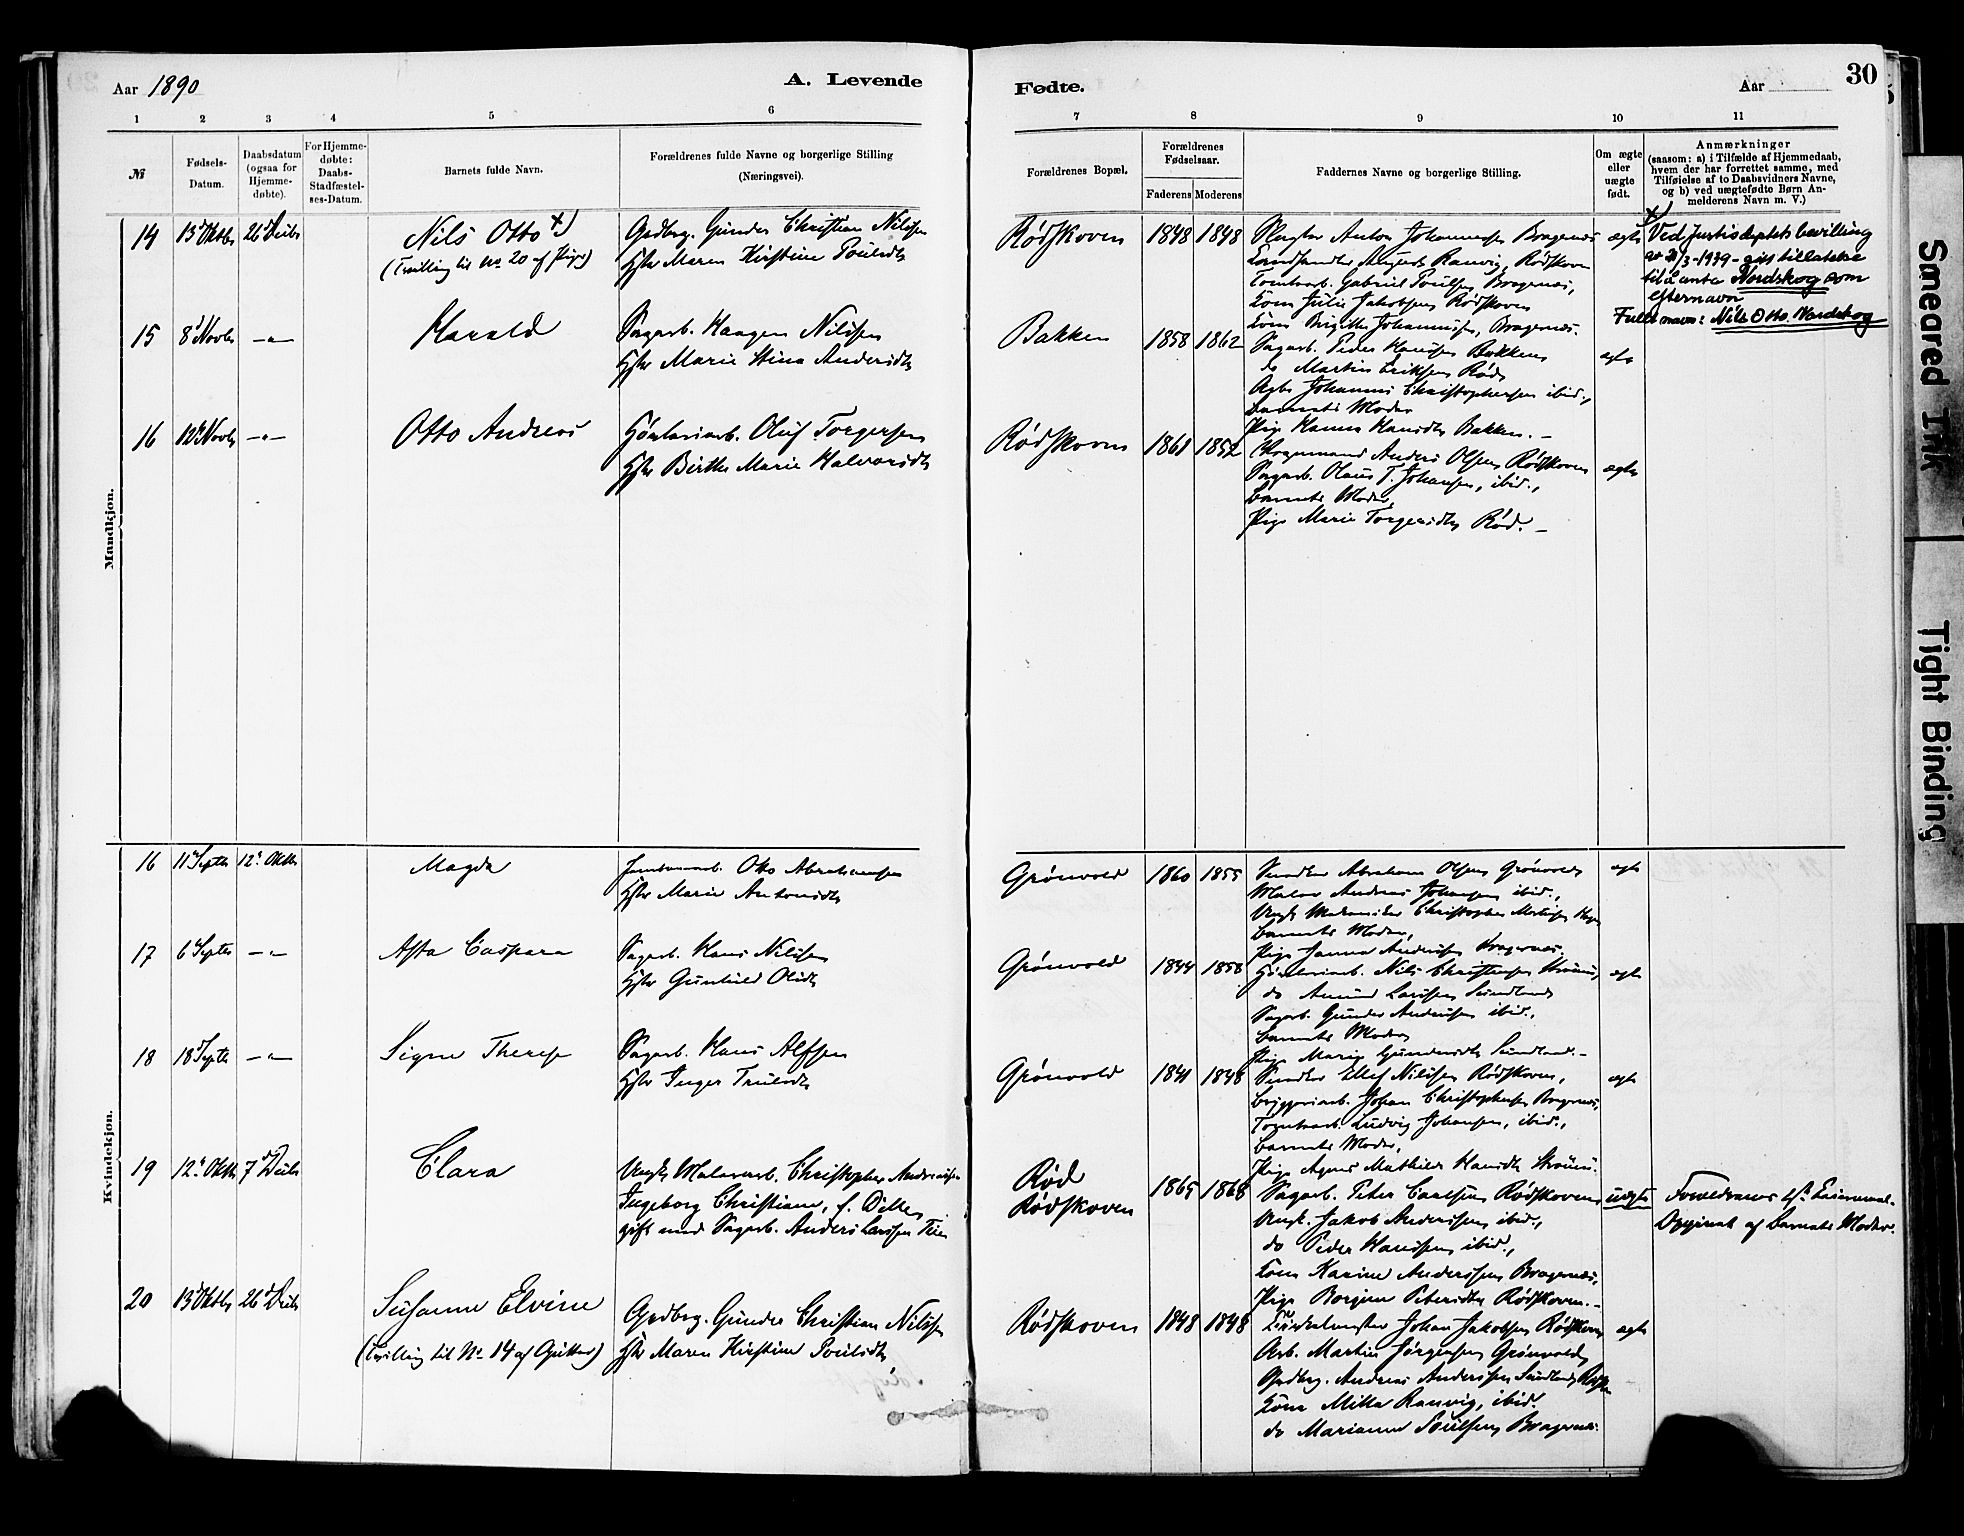 Aar 1890
A. Levende
Fødte.
Aar
30
1 2 3 4 5 6 7 8 9 10 11
№
Fødsels-Datum.
Daabsdatum (ogsaa for Hjemme-døbte).
For Hjemme-døbte: Daabs-Stadfæstel-ses-Datum.
Barnets fulde Navn.
Forældrenes fulde Navne og borgerlige Stilling
(Næringsvei).
Forældrenes Bopæl.
Forældrenes Fødselsaar.
Faderens Moderens
Faddernes Navne og borgerlige Stilling.
Om ægte eller uægte født.
Anmærkninger
(saasom: a) i Tilfælde af Hjemmedaab,
hvem der har forrettet samme, med
Tilføielse af to Daabsvidners Navne,
og b) ved uægtefødte Børn An-
melderens Navn m. V.)
Mandkjøn.
14 13 Oktbr 26 Decbr
Nils Otto x)
(Tvilling til No 20 af Piger)
Grdbrg. Gunder Christian Nilssen
Hstr Maren Kirstine Poulsdtr
Rødskoven 1848 1848
Anton Johannessen Bragernæs
Landhandler August Ranvig, Rødskoven
Tomtearb. Gabriel Poulsen Bragernæs,
Kone Julie Jakobsen Rødskoven
Kone Birgitte Johannessen, Bragernæs.
ægte
x) Ved Justisdeptets bevilling
av 21/3-1939 gitt tillatelse
til å anta Nordskog som
efternavn
Fullt navn: Nils Otto Nordskog
15 8 Novbr —"—
Harald
Sagarb. Haagen Nilssen
Hstr Marie Stina Andersdtr
Bakken 1858 1862
Sagarb. Peder Hansen Bakken
do Martin Eriksen Rød
Johannes Christophersen ibid.,
Barnets Moder
Pige Hanna Hansdtr Bakken. —
ægte
16 12 Novbr —"—
Otto Andreas
Høvleriarb. Oluf Torgersen
Hstr Birthe Marie Halvorsdtr
Rødskoven 1861 1852
Anders Olsen Rødskoven
Sagarb. Olaus T. Johansen, ibid.,
Barnets Moder,
Pige Marie Torgersdtr Rød. —
ægte
Kvindekjøn.
16 11 Septbr 12 Oktbr
Magda
Otto Abrahamsen
Hstr Marie Antonsdtr
Grønvold 1860 1855
Abraham Olsen Grønvold
Maler Andreas Johansen ibid.,
Ungk. Christopher
Barnets Moder,
Pige Janna Andersen Bragernæs.
ægte
17 6 Septbr —"—
Asta Caspara
Sagarb. Hans Nilsen
Hstr Gunhild Olsdtr
Grønvold 1844 1858
Høvleriarb. Nils Christensen
do Amund Larssen Sundland
Sagarb. Gunder Andersen ibid.,
Barnets Moder
Pige Marie Gundersdtr Sundland. —
ægte
18 18 Septbr —"—
Signe Therese
Sagarb. Hans Alfsen
Hstr Inger Truulsdtr
Grønvold 1841 1848
Ellef Nilssen Rødskoven,
Bryggeriarb. Johan Christophersen Bragernæs,
Tomtearb. Ludvig Johansen, ibid.,
Barnets Moder,
Pige Agnes Mathilde Hansdtr
ægte
19 12 Oktbr 7 Decbr
Clara
Ungk. Malerarb. Christopher Andreassen
Ingeborg Christiane, f.
gift med Sagarb. Anders Larssen
Rød
Rødskoven
1865 1868
Sagarb. Peter Carlsen Rødskoven
Ungk. Jakob Anderssen ibid.,
do Peder Hanssen ibid.,
Kone Karine Anderssen Bragernæs,
Pige Borgine Petersdtr Rødskoven. —
uægte
Forældrenes
Opgivet af Barnets Moder.
20 13 Oktbr 26 Decbr
Susanne Elvine
(Tvilling til No 14 af Gutter)
Grdbrg. Gunder Christian Nilssen
Hstr Maren Kirstine Poulsdtr
Rødskoven 1848 1848
Johan Jakobsen Rødskoven
Arb. Martin Jørgensen Grønvold
Grdbrg. Andreas Anderssen Sundland
Kone Milla Ranvig, ibid.
do Marianne Poulsen Bragernæs.
ægte
Smeared Ink
Tight Binding